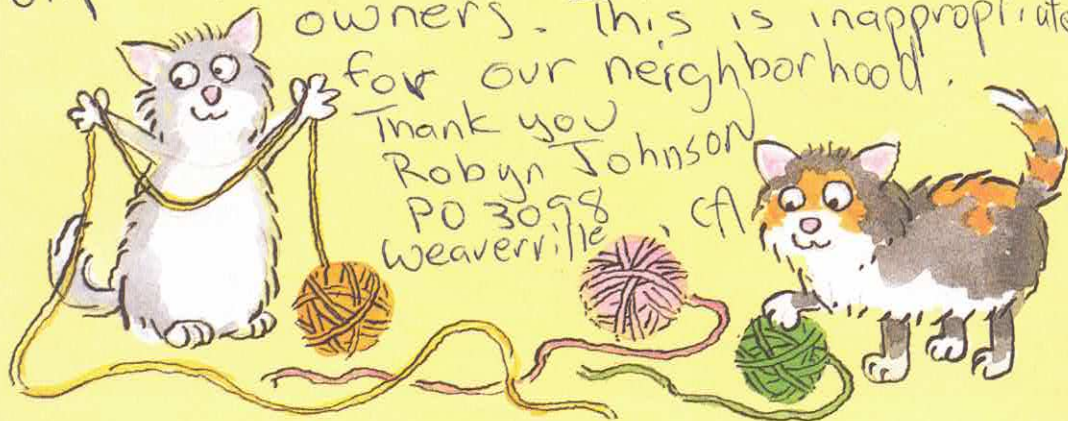 owners. This is inappropriate
for our neighborhood.
Thank you
Robyn Johnson
PO 3098
Weaverville, CA